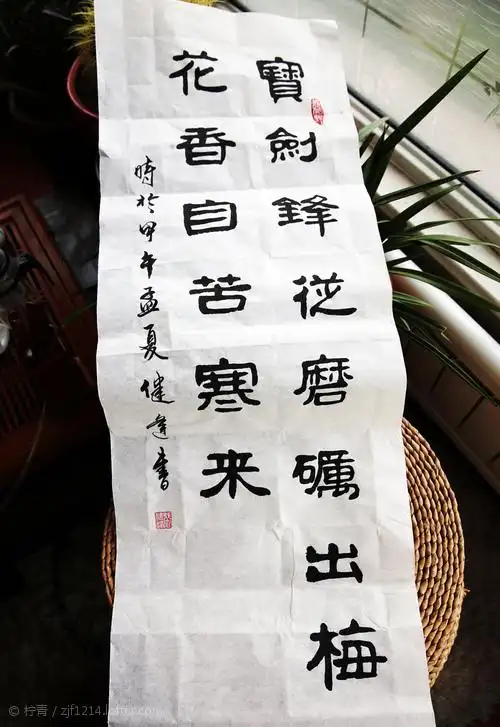 寶劍鋒從磨礪出梅
花香自苦寒来
時於甲午孟夏健達書
© 柠青 / zjf1214.lofter.com